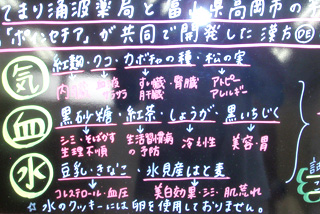 てまり涌波薬局と富山県高岡市の
「ポンセチア」が共同で開発した漢方
気
紅麹・クコ・カボチャの種・松の実
すい臓・腎臓
肝臓
アトピー
アレルギー
血
黒砂糖・紅茶・しょうが 黒いちじく
シミ・そばかす
生理不順
生活習慣病
の予防
冷え性
美容・胃
水
豆乳・きなこ・氷見産はと麦
コレステロール・血圧
美白効果・シミ・肌荒れ
☆水のクッキーには卵を使用しておりません。